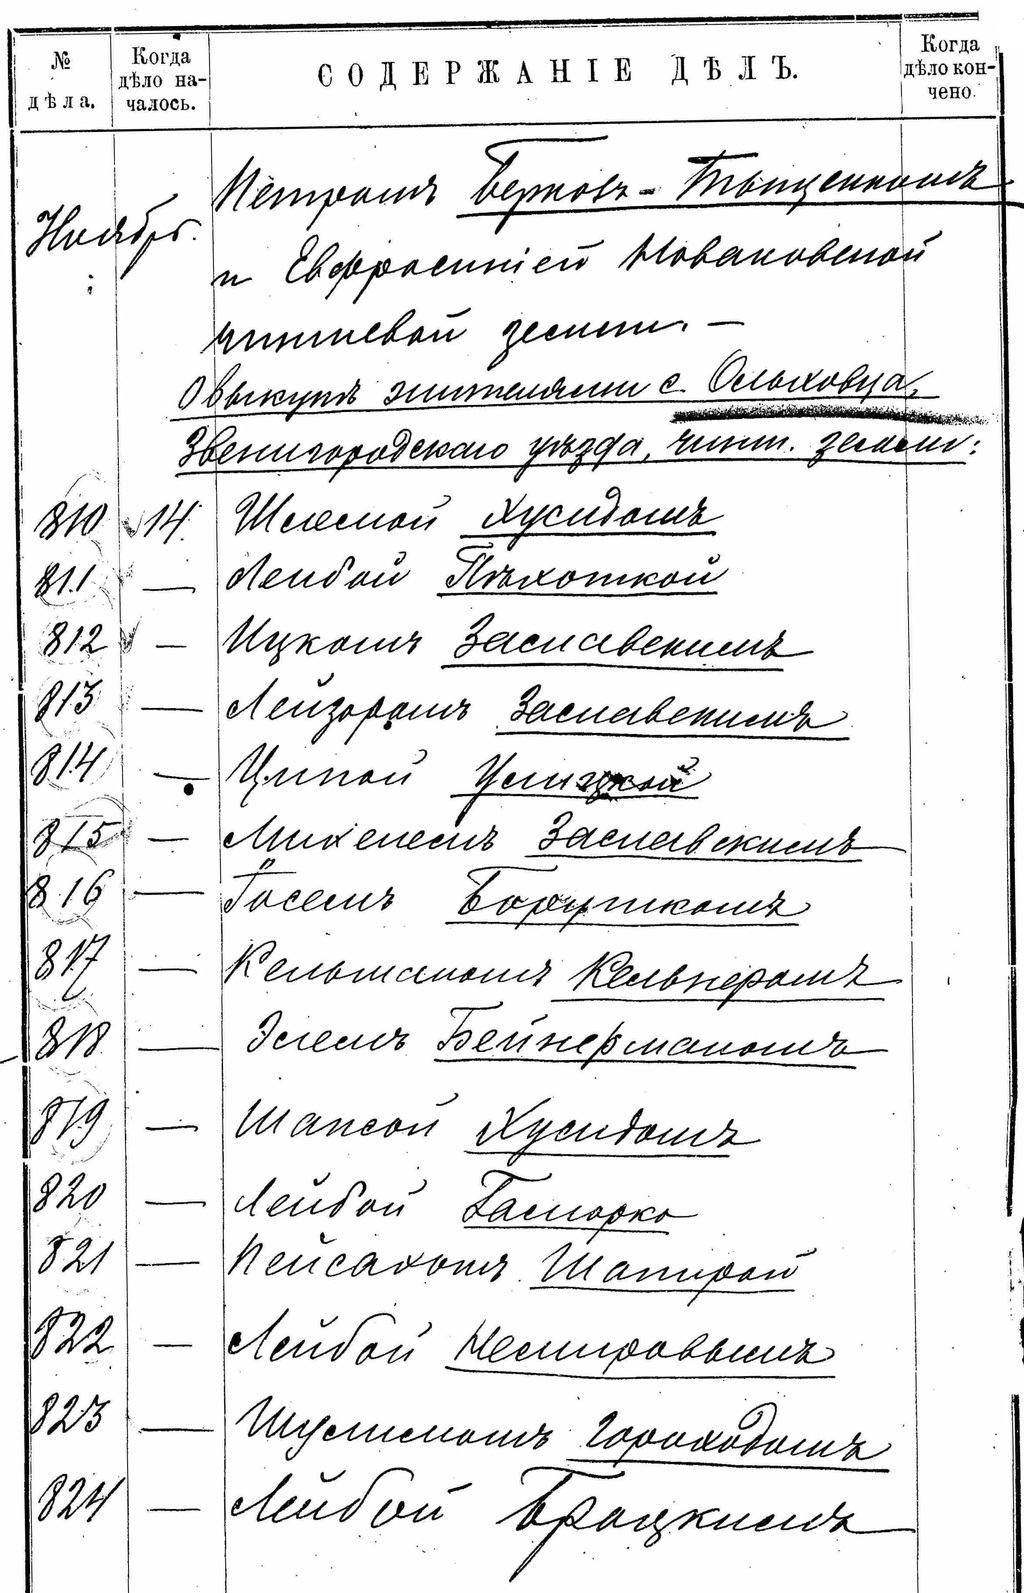 № дѣла.
Когда дѣло на-
чалось.
СОДЕРЖАНІЕ ДѢЛЪ.
Когда дѣло кон-
чено.
Ноябрь.
Петромъ Берковъ-Тыщенкомъ
и Евфросиніей Новаковской
чиншевой земли. —
О выкупѣ жителями с. Ольховца,
Звенигородскаго уѣзда, чинш. земли:
810 14 Шлемой Хусидомъ
811 — Лейбой Пѣхоткой
812 — Ицкомъ Заславскимъ
813 — Лейзоромъ Заславскимъ
814 — Ципой
815 — Михелемъ Заславскимъ
816 — Іосемъ
817 — Кельманомъ Кельнеромъ
818 — Бейнерманомъ
819 — Шапсой Хусидомъ
820 — Лейбой
821 — Пейсахомъ Шапирой
822 — Лейбой Немировымъ
823 — Шулимомъ Гороходомъ
824 — Лейбой Брацкимъ